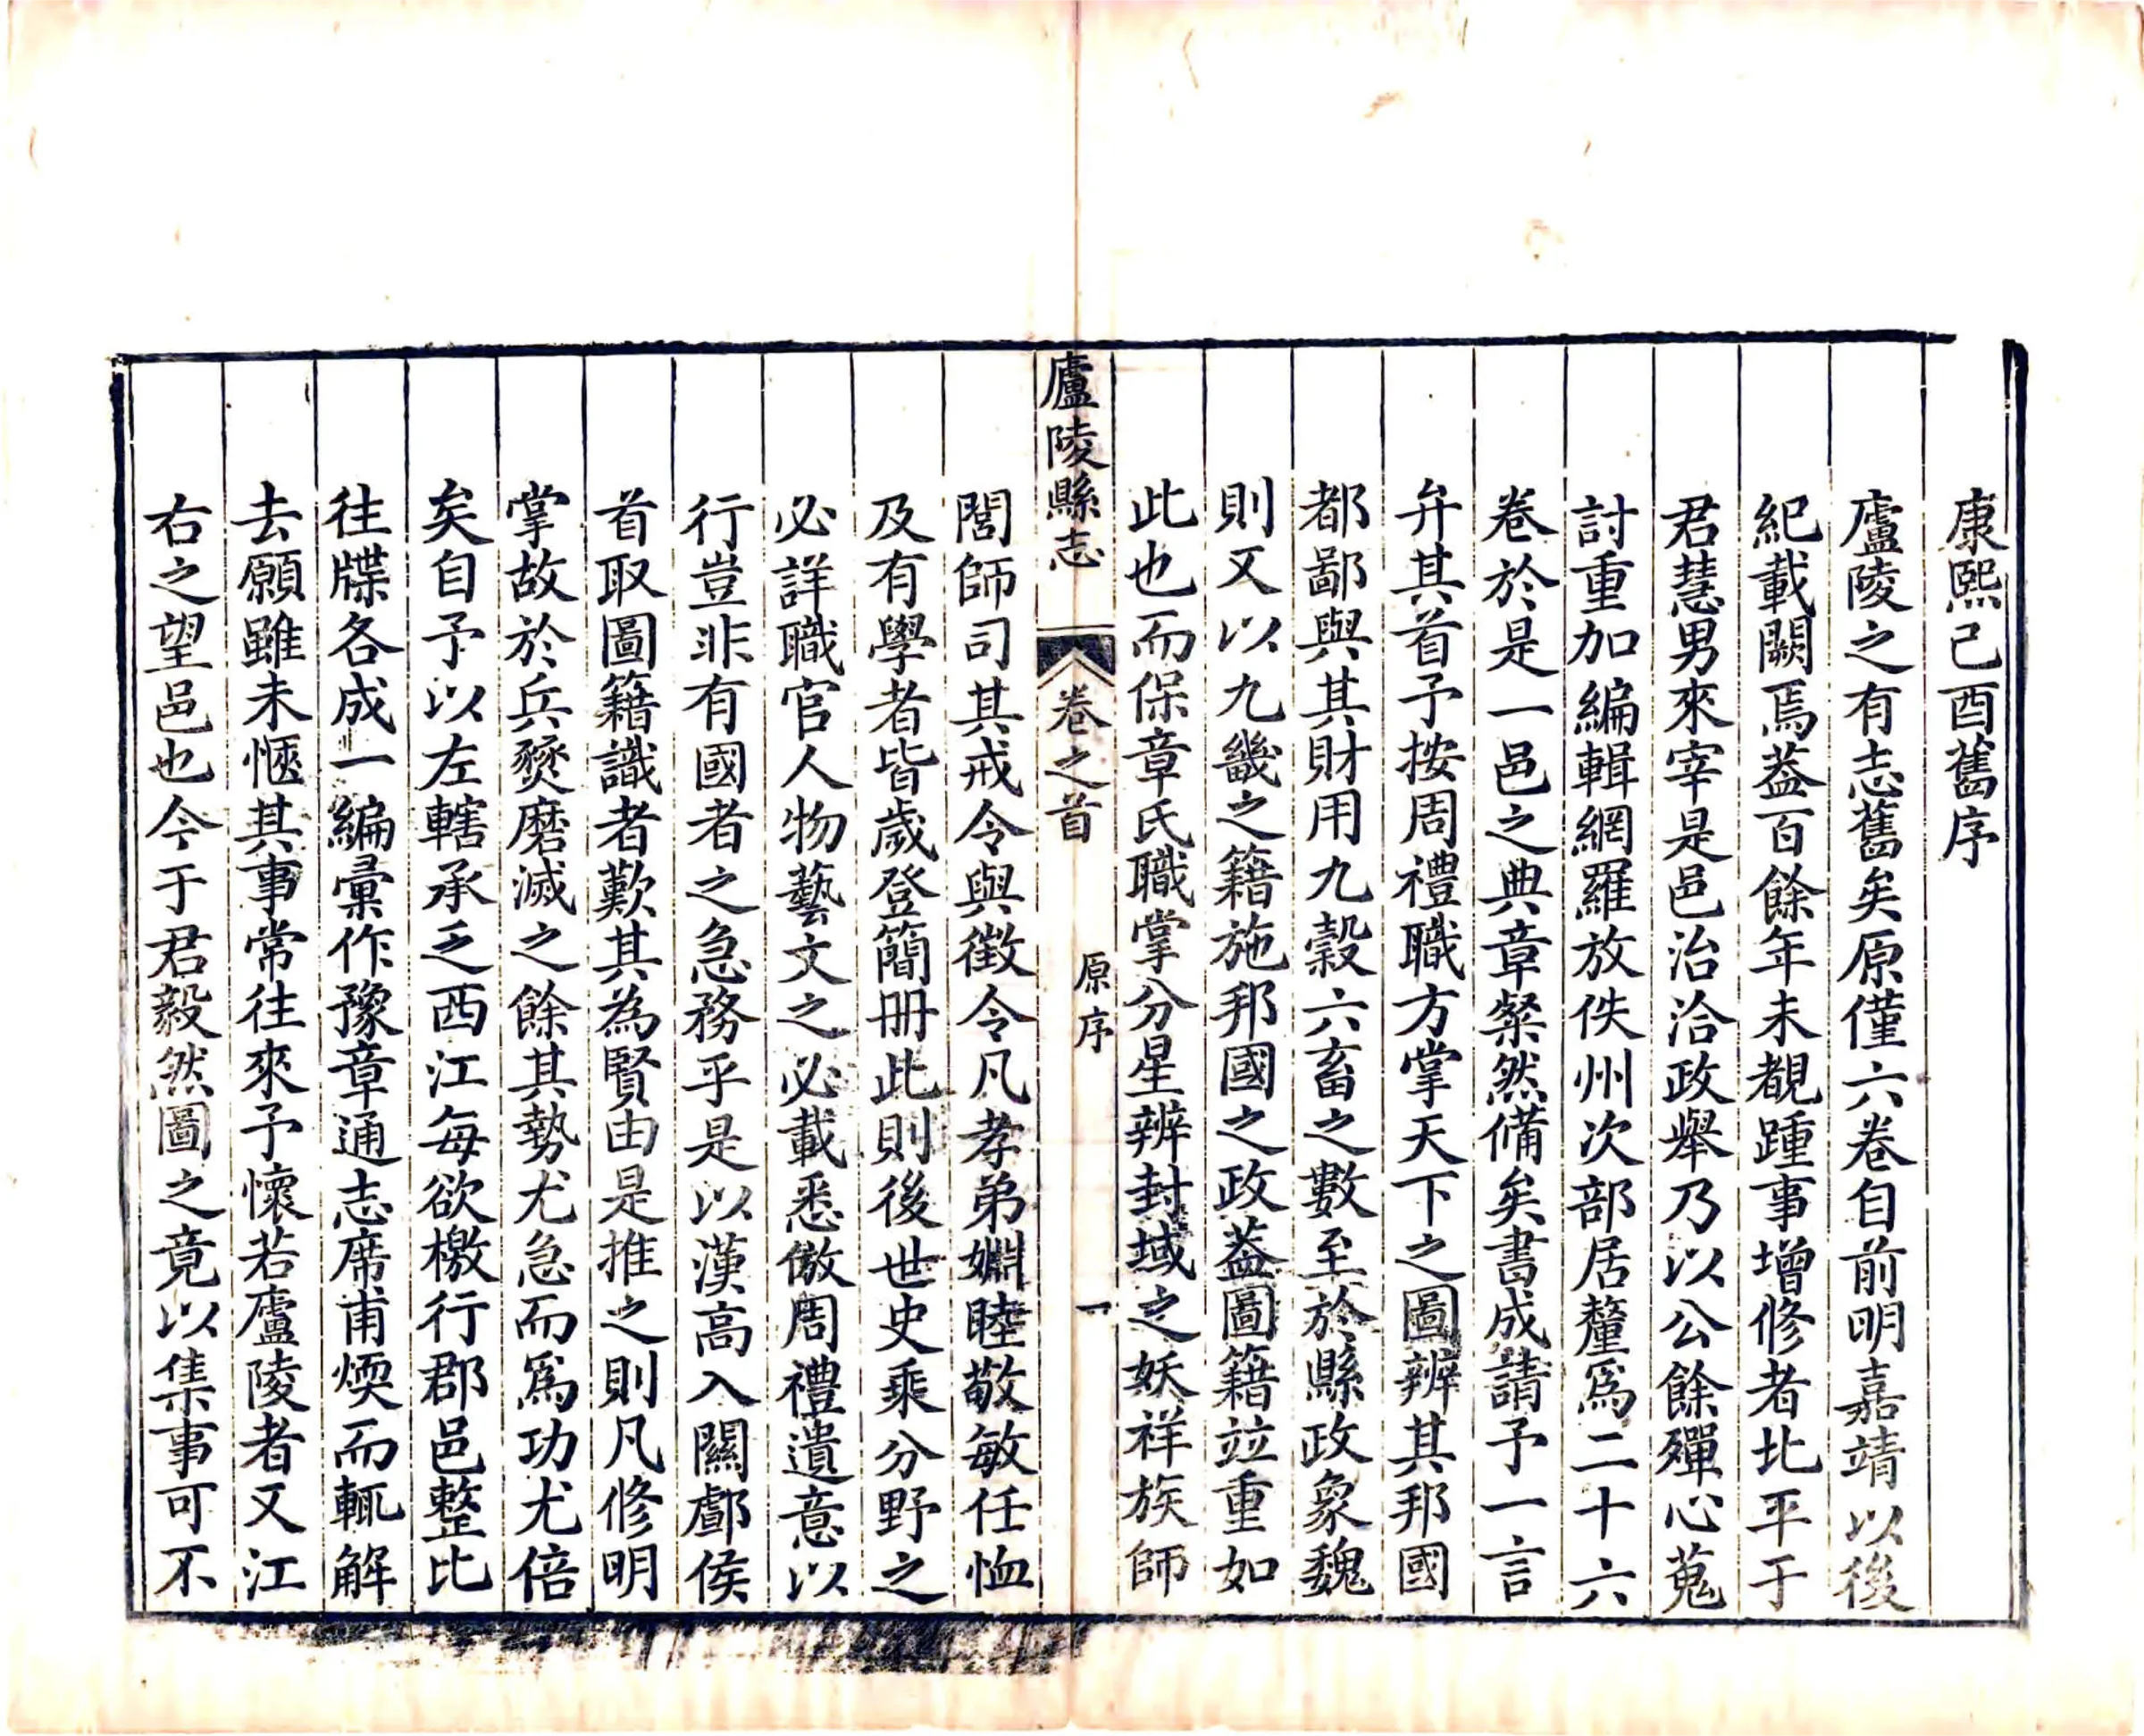 康熙己酉舊序
廬陵之有志舊矣原僅六卷自前明嘉靖以後
紀載闕焉葢百餘年未覩踵事增修者北平于
君慧男來宰是邑治洽政舉乃以公餘殫心蒐
討重加編輯網羅放佚州次部居釐爲二十六
卷於是一邑之典章粲然備矣書成請予一言
弁其首予按周禮職方掌天下之圖辨其邦國
都鄙與其財用九穀六畜之數至於縣政象魏
則又以九畿之籍施邦國之政葢圖籍竝重如
此也而保章氏職掌分星辨封域之妖祥族師
廬陵縣志
卷之首
原序
一
閭師司其戒令與徵令凡孝弟婣睦敬敏任恤
及有學者皆歲登簡冊此則後世史乘分野之
必詳職官人物藝文之必載悉倣周禮遺意以
行豈非有國者之急務乎是以漢高入關酇侯
首取圖籍識者歎其為賢由是推之則凡修明
掌故於兵燹磨滅之餘其勢尤急而爲功尤倍
矣自予以左轄承乏西江每欲檄行郡邑整比
徃牒各成一編彙作豫章通志席甫煗而輒解
去願雖未愜其事常往來予懷若廬陵者又江
右之望邑也今于君毅然圖之竟以集事可不